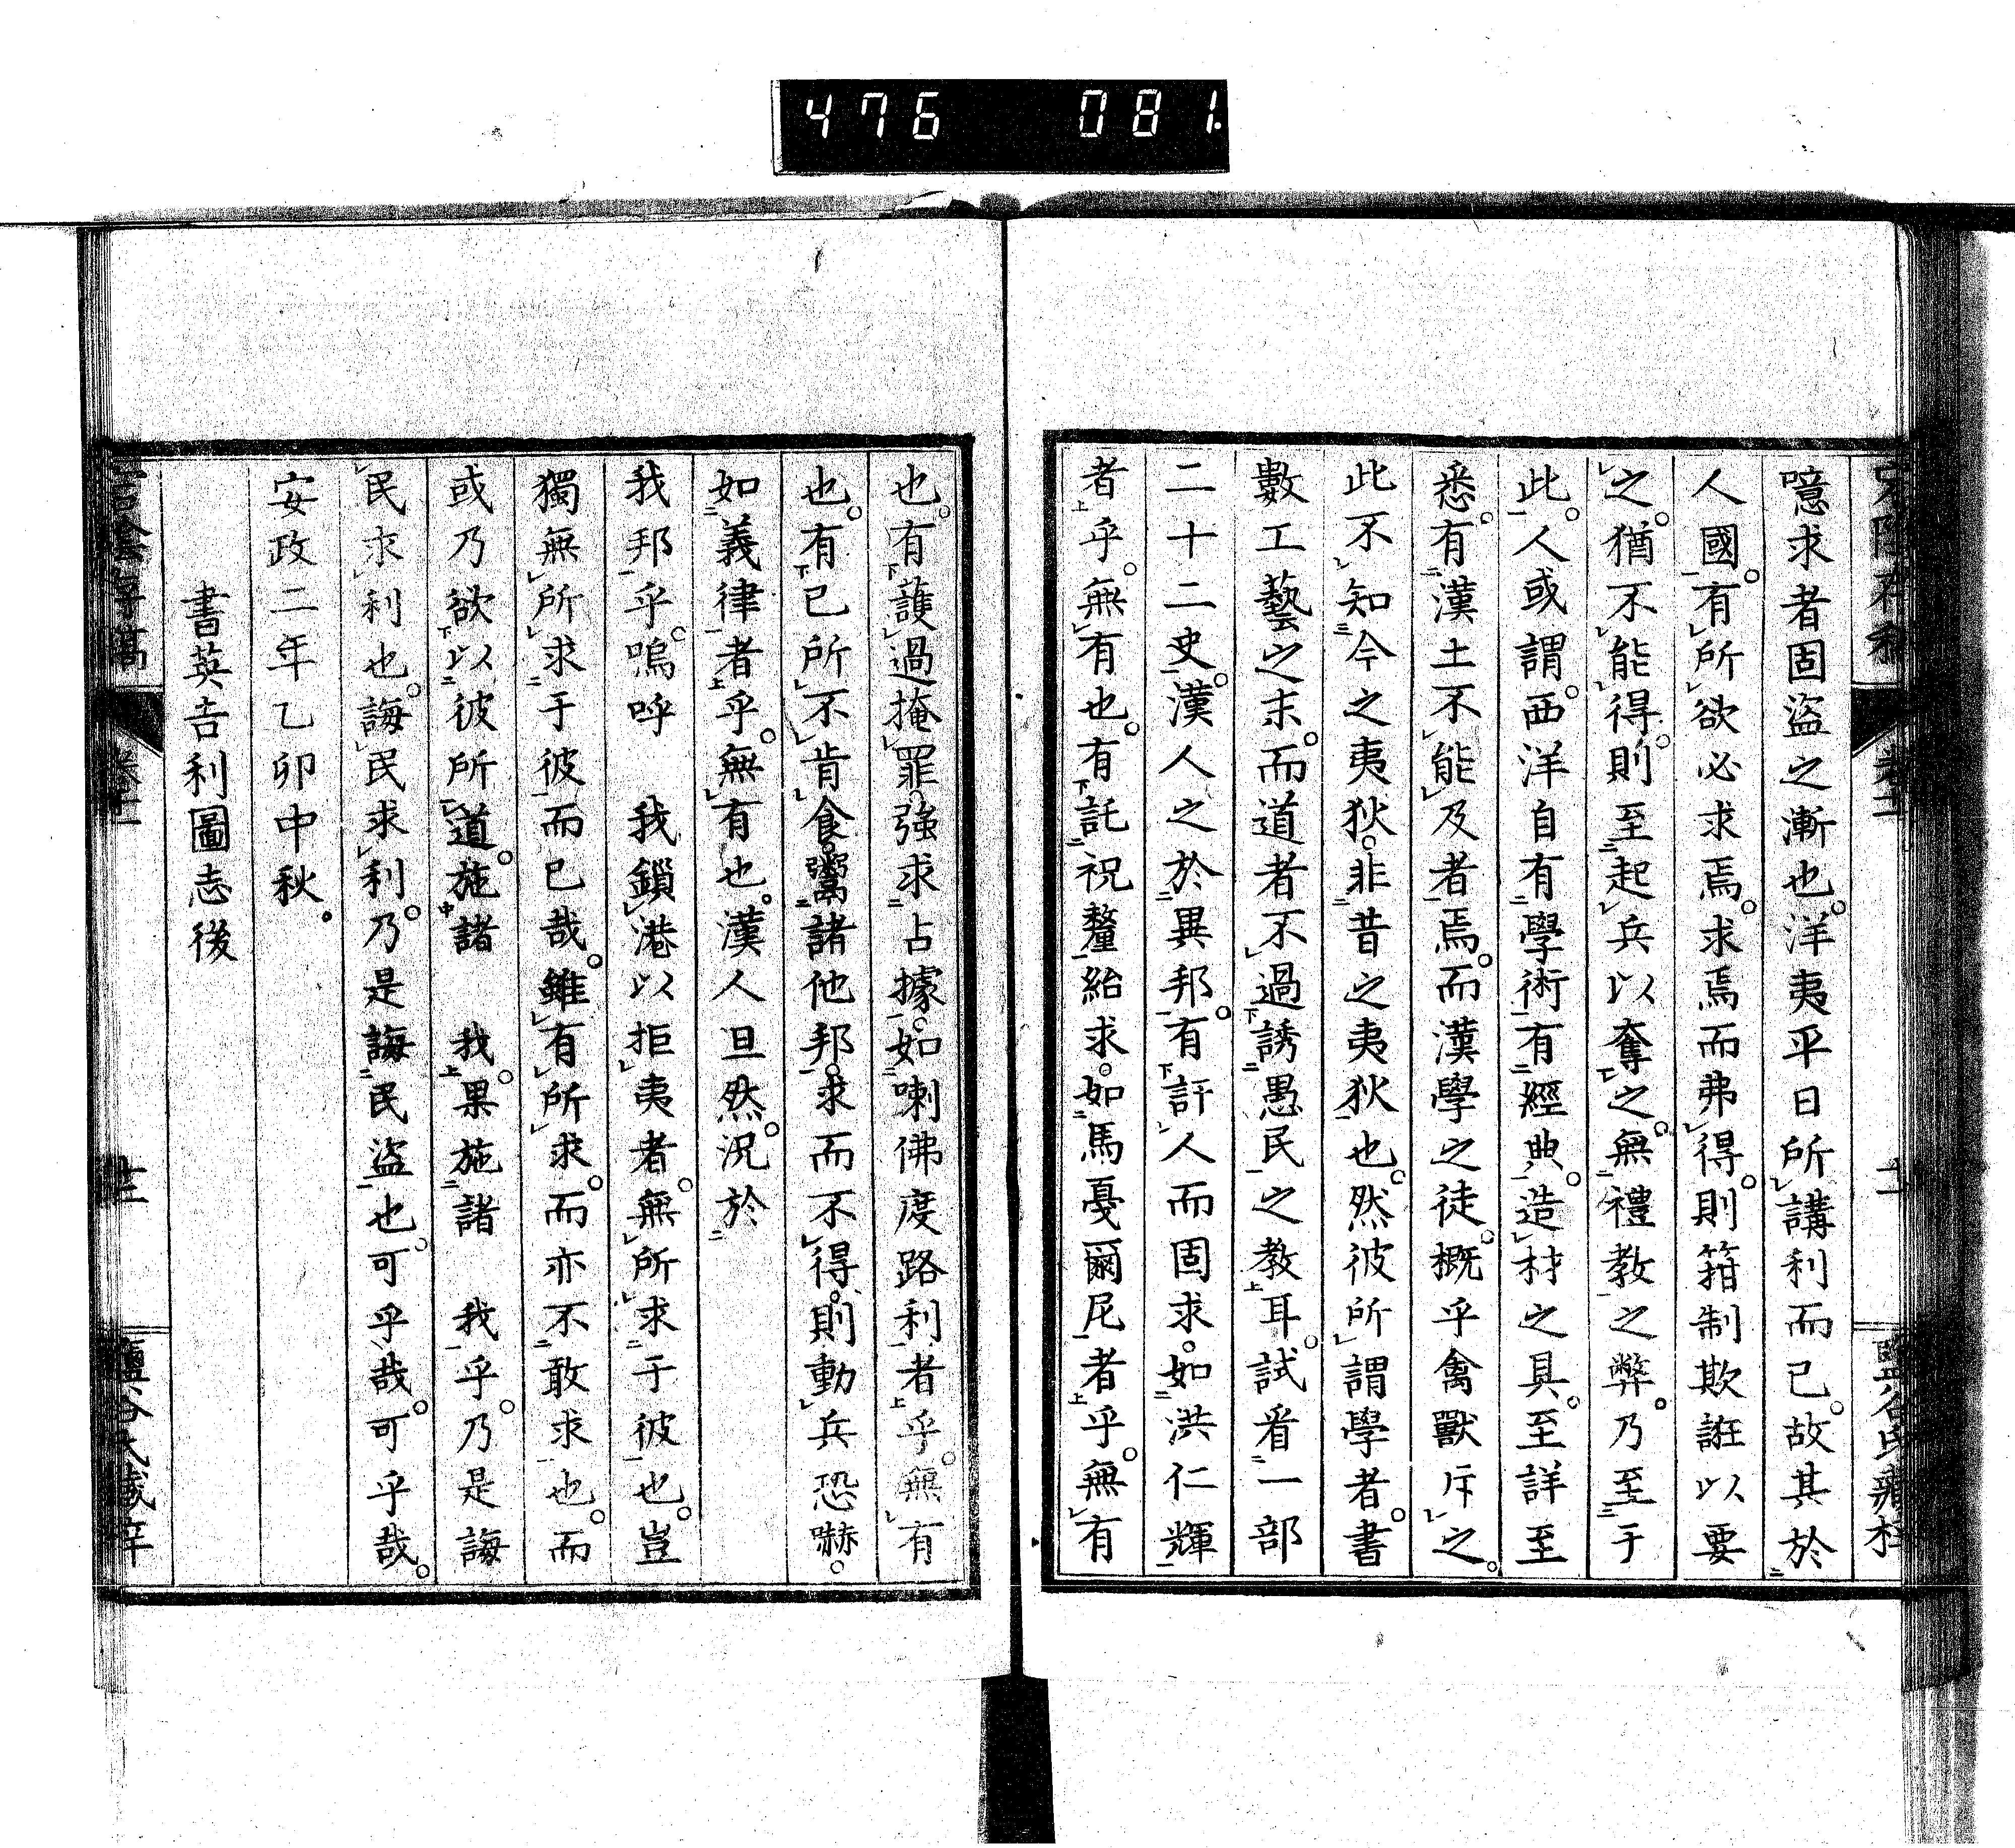 476 081.
噫求者固盜之漸也。洋夷平日所講利而已。故其於
人國。有所欲必求焉。求焉而弗得。則箝制欺誑以要
之。猶不能得。則至起兵以奪之。無禮教之弊。乃至于
此。人或謂。西洋自有學術有經典。造材之具。至詳至
悉。有漢土不能及者焉。而漢學之徒。概乎禽獸斥之。
此不知今之夷狄。非昔之夷狄也。然彼所謂學者。書
數工藝之末。而道者不過誘愚民之教耳。試看一部
二十二史。漢人之於異邦。有訐人而固求。如洪仁輝
者乎。無有也。有託祝釐紿求。如馬戛爾尼者乎。無有
也。有護過掩罪。強求占據。如喇佛度路利者乎。無有
也。有己所不肯食。鬻諸他邦。求而不得。則動兵恐嚇。
如義律者乎。無有也。漢人且然。況於
我邦乎。嗚呼 我鎖港以拒夷者。無所求于彼也。豈
獨無所求于彼而已哉。雖有所求。而亦不敢求也。而
或乃欲以彼所道。施諸 我。果施諸 我乎。乃是誨
民求利也。誨民求利。乃是誨民盜也。可乎哉。可乎哉。
安政二年乙卯中秋。
書英吉利圖志後